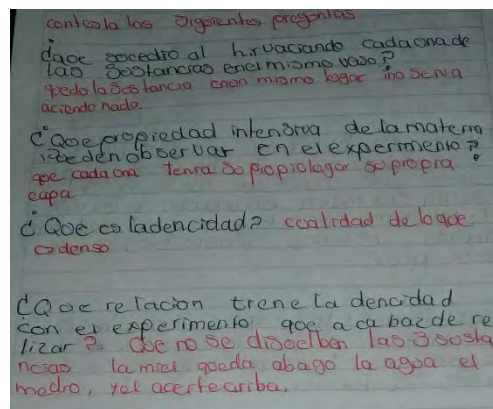 contesla las Sigoientes pregontas
¿qoe socedio al hirvaciando cadaonade
las Sostancias enel mismo vaso?
qoedo la Sostancia enon mismo logar ino Seria
aciendo nada.
¿Qoe propiedad intensiva de la materia
pueden observar en el experimento?
qoe cada ona tenia So propio logar so propia
capa
¿Qoe es la dencidad? coalidad de lo qoe
es denso
¿Qoe relacion tiene la dencidad
con el experimento qoe acabaz de re
lizar? Qoe no se disoelben las 3 sosta
ncias la miel qoeda abago la agoa el
medio, yel aceite ariba.